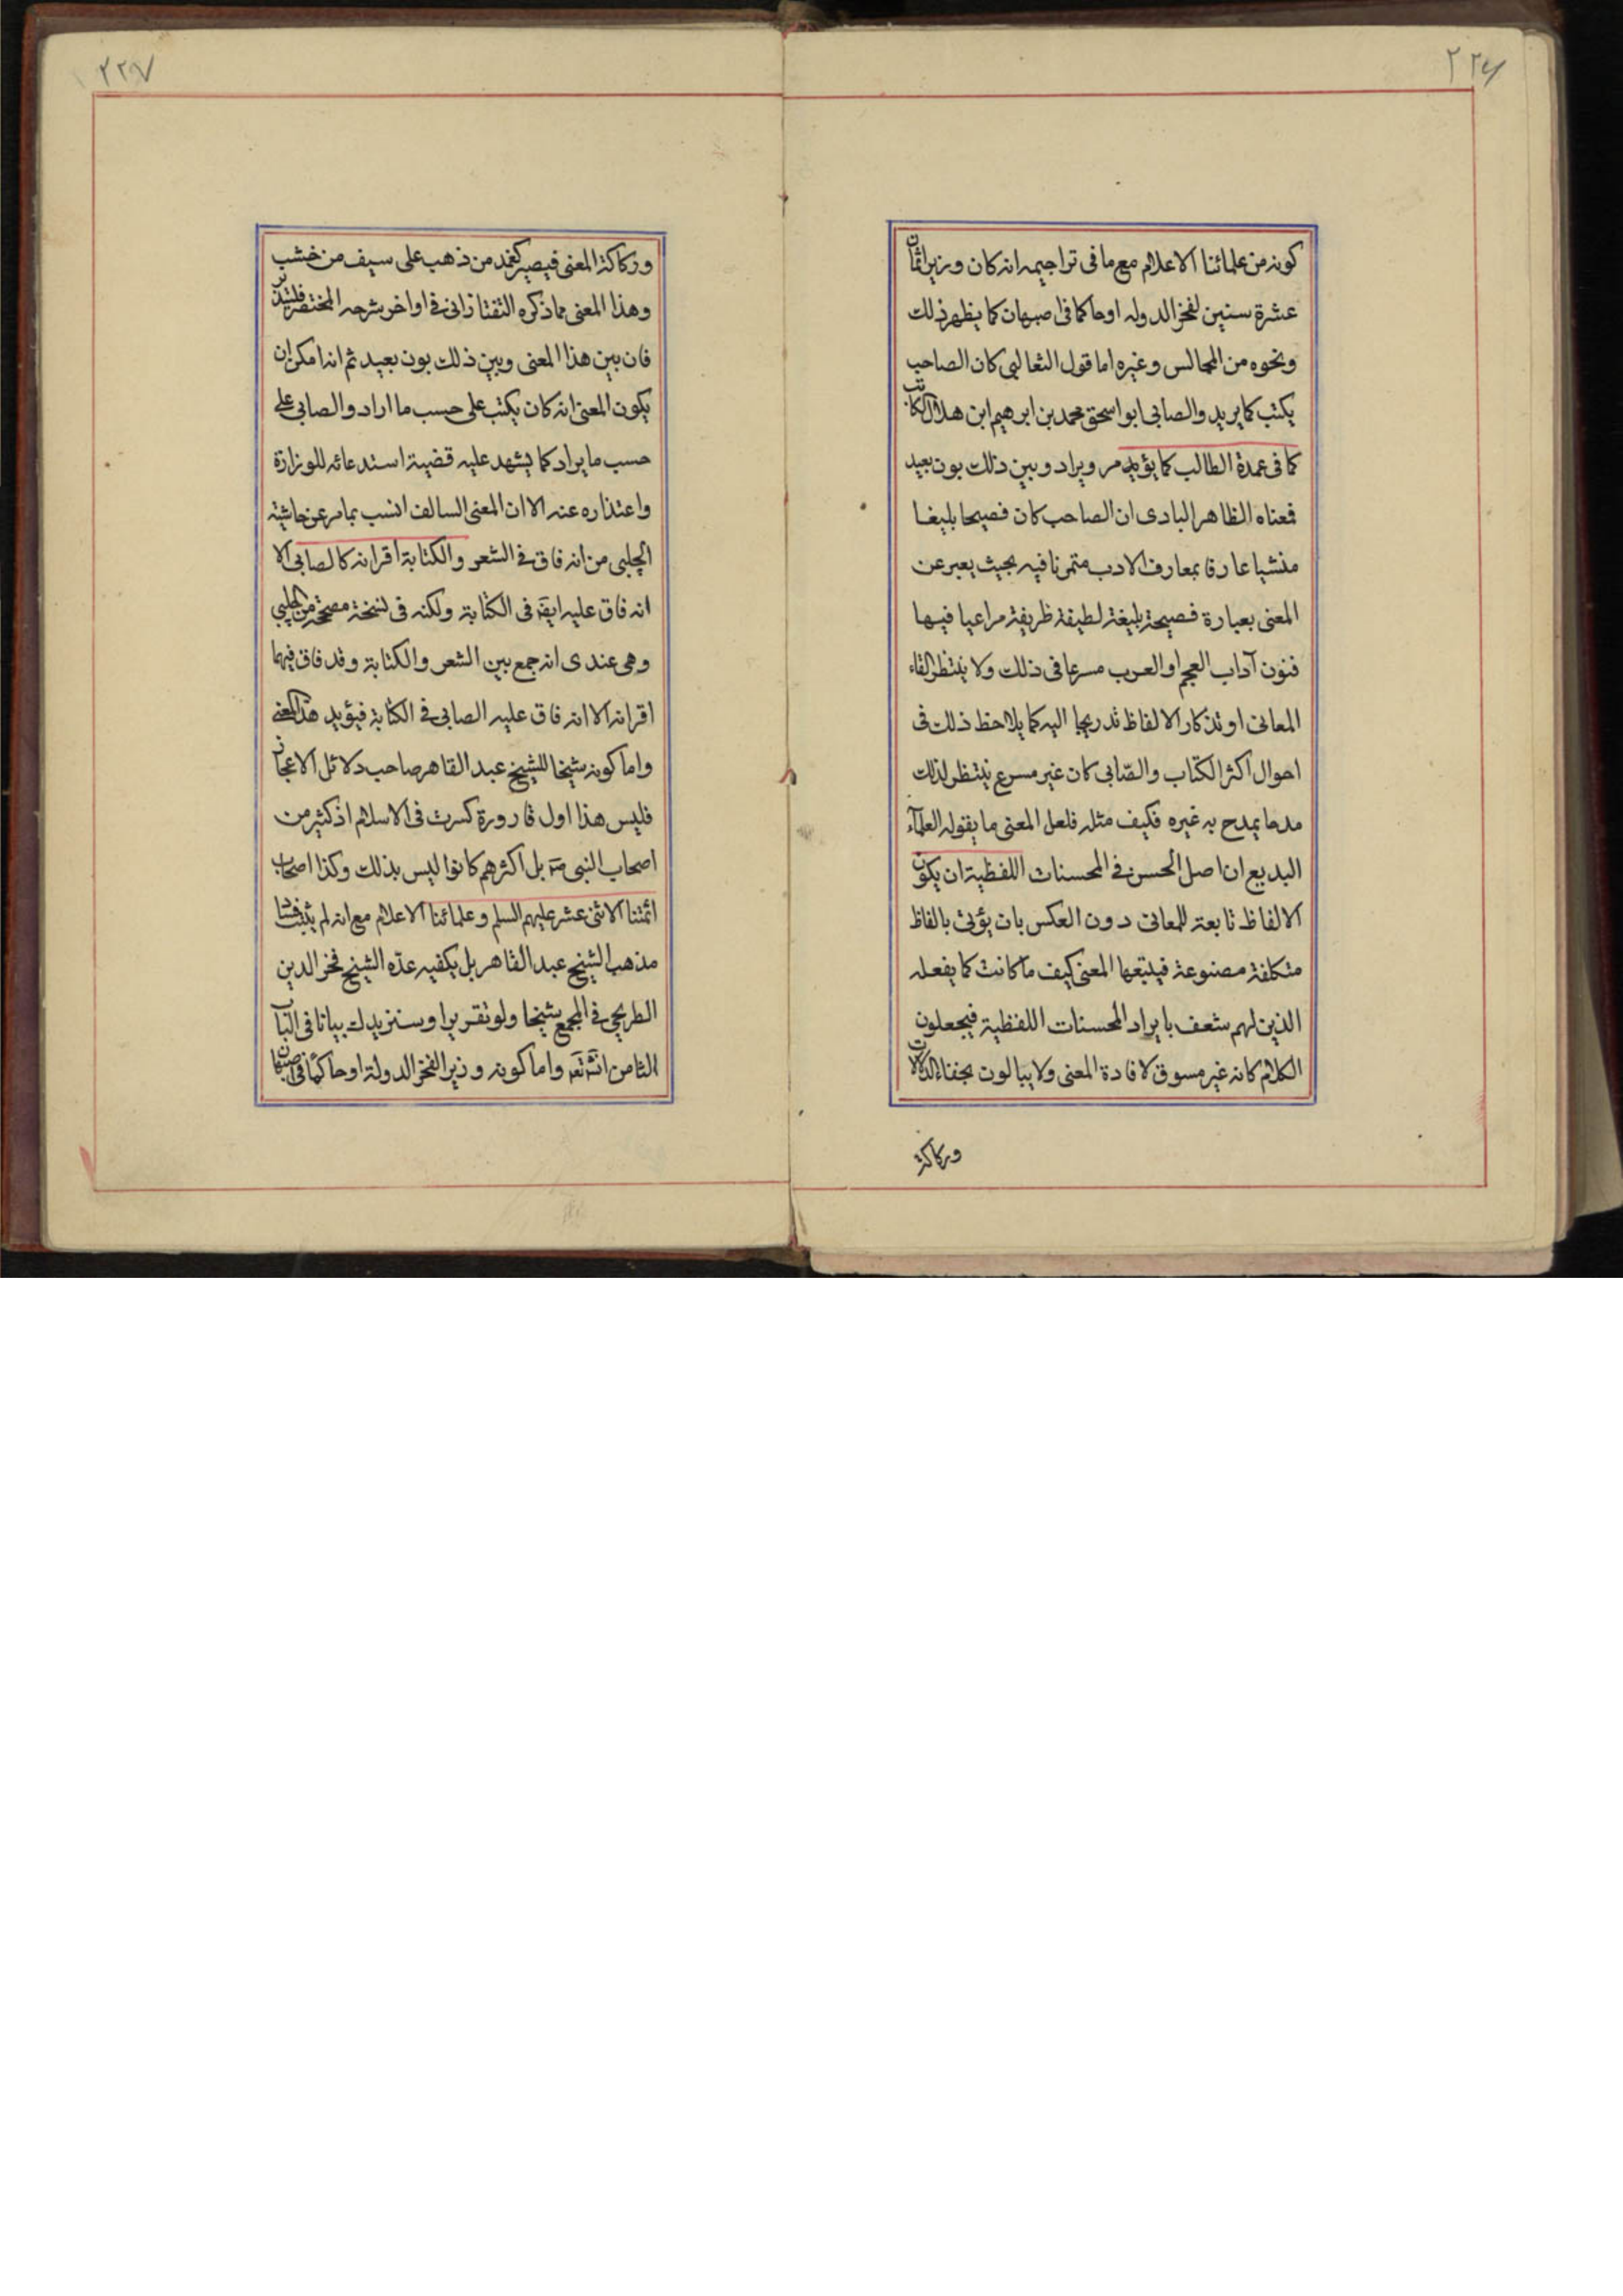 ٢٢٦
كونه من علمائنا الاعلام مع ما فى تراجيمه انه كان وزيرا ثمان
عشرة سنين لفخر الدوله اوحاكما فى اصبهان كما يظهر ذلك
ونحوه من المجالس وغيره اما قول الثعالبى كان الصاحب
يكتب كما يريد والصابى ابو اسحق محمد بن ابرهيم ابن هلال الكاتب
كما فى عمدة الطالب كما يؤيد مر ويراد وبين ذلك بون بعيد
فمعناه الظاهر البادى ان الصاحب كان فصيحا بليغا
منشيا عارفا بمعارف الادب متمرنا فيه بحيث يعبر عن
المعنى بعبارة فصيحة بليغة لطيفة ظريفة مراعيا فيها
فنون آداب العجم او العرب مسرعا فى ذلك ولا ينتظر القاء
المعانى او تذكار الالفاظ تدريجا اليه كما يلاحظ ذلك فى
احوال اكثر الكتاب والصّابى كان غير مسرع ينتظر لذلك
مدحا يمدح به غيره فكيف مثله فلعل المعنى ما يقوله العلمآء
البديع ان اصل الحسن فى المحسنات اللفظية ان يكون
الالفاظ تابعة للمعانى دون العكس بان يؤتى بالفاظ
متكلفة مصنوعة فيتبعها المعنى كيف ما كانت كما يفعله
الذين لهم شعف بايراد المحسنات اللفظية فيجعلون
الكلام كانه غير مسوق لافادة المعنى ولا يبالون بخفاء الدلالات
وركاكة
٢٢٧
وركاكة المعنى فيصير كغمد من ذهب على سيف من خشب
وهذا المعنى مما ذكره التفتازانى فى اواخر شرحه المختصر فلتتدبر
فان بين هذا المعنى وبين ذلك بون بعيد ثم انه امكن ان
يكون المعنى انه كان يكتب على حسب ما اراد والصابى على
حسب ما يراد كما يشهد عليه قضية استدعائه للوزارة
واعتذاره عنه الا ان المعنى السالف انسب بما مر عن حاشية
الچلبى من انه فاق فى الشعر والكتابة اقرانه كالصابى الا
انه فاق عليه ايضا فى الكتابة ولكنه فى نسخة مصححة من الچلبى
وهى عندى انه جمع بين الشعر والكتابة وقد فاق فيهما
اقرانه الا انه فاق عليه الصابى فى الكتابة فيؤيد هذا المعنى
واما كونه شيخا للشيخ عبد القاهر صاحب دلائل الاعجاز
فليس هذا اول قارورة كسرت فى الاسلام اذ كثير من
اصحاب النبى صم بل اكثرهم كانوا ليس بذلك وكذا اصحاب
ائمتنا الاثنى عشر عليهم السلم وعلمائنا الاعلام مع انه لم يثبت
مذهب الشيخ عبد القاهر بل يكفيه عدّه الشيخ فخر الدين
الطريحى فى المجمع شيخا ولو تقريرا وسنزيدك بيانا فى الباب
الثامن انشه تعه واما كونه وزيرا لفخر الدولة اوحاكما فى اصبهان